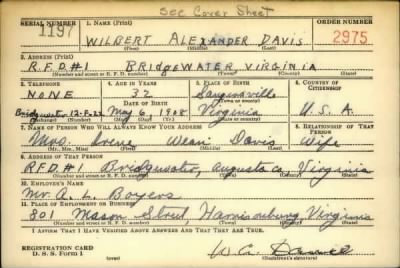 See Cover Sheet
SERIAL NUMBER 1. NAME (Print) ORDER NUMBER
1197 WILBERT ALEXANDER DAVIS 2975
(First) (Middle) (Last)
2. ADDRESS (Print)
R.F.D.#1 BRIDGEWATER, VIRGINIA
(Number and street or R. F. D. number) (Town) (County) (State)
3. TELEPHONE 4. AGE IN YEARS 5. PLACE OF BIRTH 6. COUNTRY OF CITIZENSHIP
NONE 32 Sangersville
DATE OF BIRTH (Town or county)
Bridgewater May 6, 1908 Virginia U.S.A.
(Exchange) (Number) (Mo.) (Day) (Yr.) (State or country)
7. NAME OF PERSON WHO WILL ALWAYS KNOW YOUR ADDRESS 8. RELATIONSHIP OF THAT PERSON
Mrs. Irene Davis Wife
(Mr., Mrs., Miss) (First) (Middle) (Last)
9. ADDRESS OF THAT PERSON
R.F.D.#1 Bridgewater, Augusta Co Virginia
(Number and street or R. F. D. number) (Town) (County) (State)
10. EMPLOYER'S NAME
Mr. A. L. Boyers
11. PLACE OF EMPLOYMENT OR BUSINESS
801 Mason Street, Harrisonburg, Virginia
(Number and street or R. F. D. number) (Town) (County) (State)
I AFFIRM THAT I HAVE VERIFIED ABOVE ANSWERS AND THAT THEY ARE TRUE.
REGISTRATION CARD
D. S. S. Form 1
(over) (Registrant's signature)